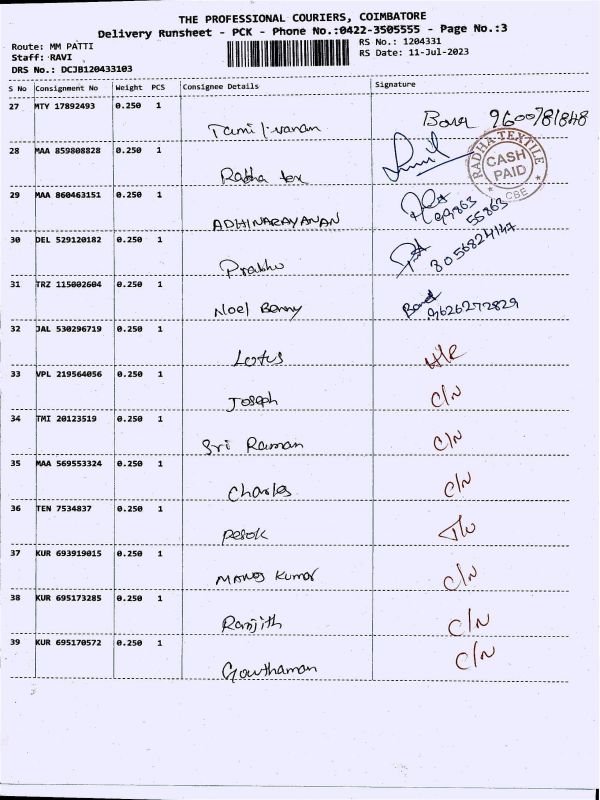 THE PROFESSIONAL COURIERS, COIMBATORE
Delivery Runsheet - PCK - Phone No.:0422-3505555 - Page No.:3
Route: MM PATTI RS No.: 1204331
Staff: RAVI RS Date: 11-Jul-2023
DRS No.: DCJB120433103
S No Consignment No Weight PCS Consignee Details Signature
27 MTY 17892493 0.250 1
Tamilvanan 9600781848
28 MAA 859808828 0.250 1
Radha tex RADHA TEXTILE CASH PAID CBE
29 MAA 860463151 0.250 1
ADHINARAYANAN 55863
30 DEL 529120182 0.250 1
Prabhu 8056824147
31 TRZ 115002604 0.250 1
Noel Benny 9626272829
32 JAL 530296719 0.250 1
Lotus
33 VPL 219564056 0.250 1
Joseph C/N
34 TMI 20123519 0.250 1
Sri Raman C/N
35 MAA 569553324 0.250 1
Charles C/N
36 TEN 7534837 0.250 1
37 KUR 693919015 0.250 1
Manoj Kumar C/N
38 KUR 695173285 0.250 1
Ranjith C/N
39 KUR 695170572 0.250 1
Gowthaman C/N